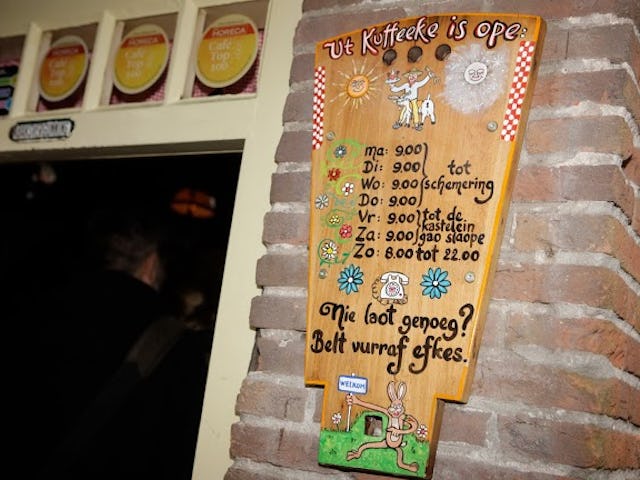 HORECA
Café
Top
100
HORECA
Café
Top
100
HORECA
Café
Top 100
Ut Kuffeeke is ope:
ma: 9.00
Di: 9.00
Wo: 9.00
Do: 9.00
tot
schemering
Vr: 9.00
Za: 9.00
tot de
kastelein
gao slaope
Zo: 8.00 tot 22.00
Nie laot genoeg?
Belt vurraf efkes.
WELKOM